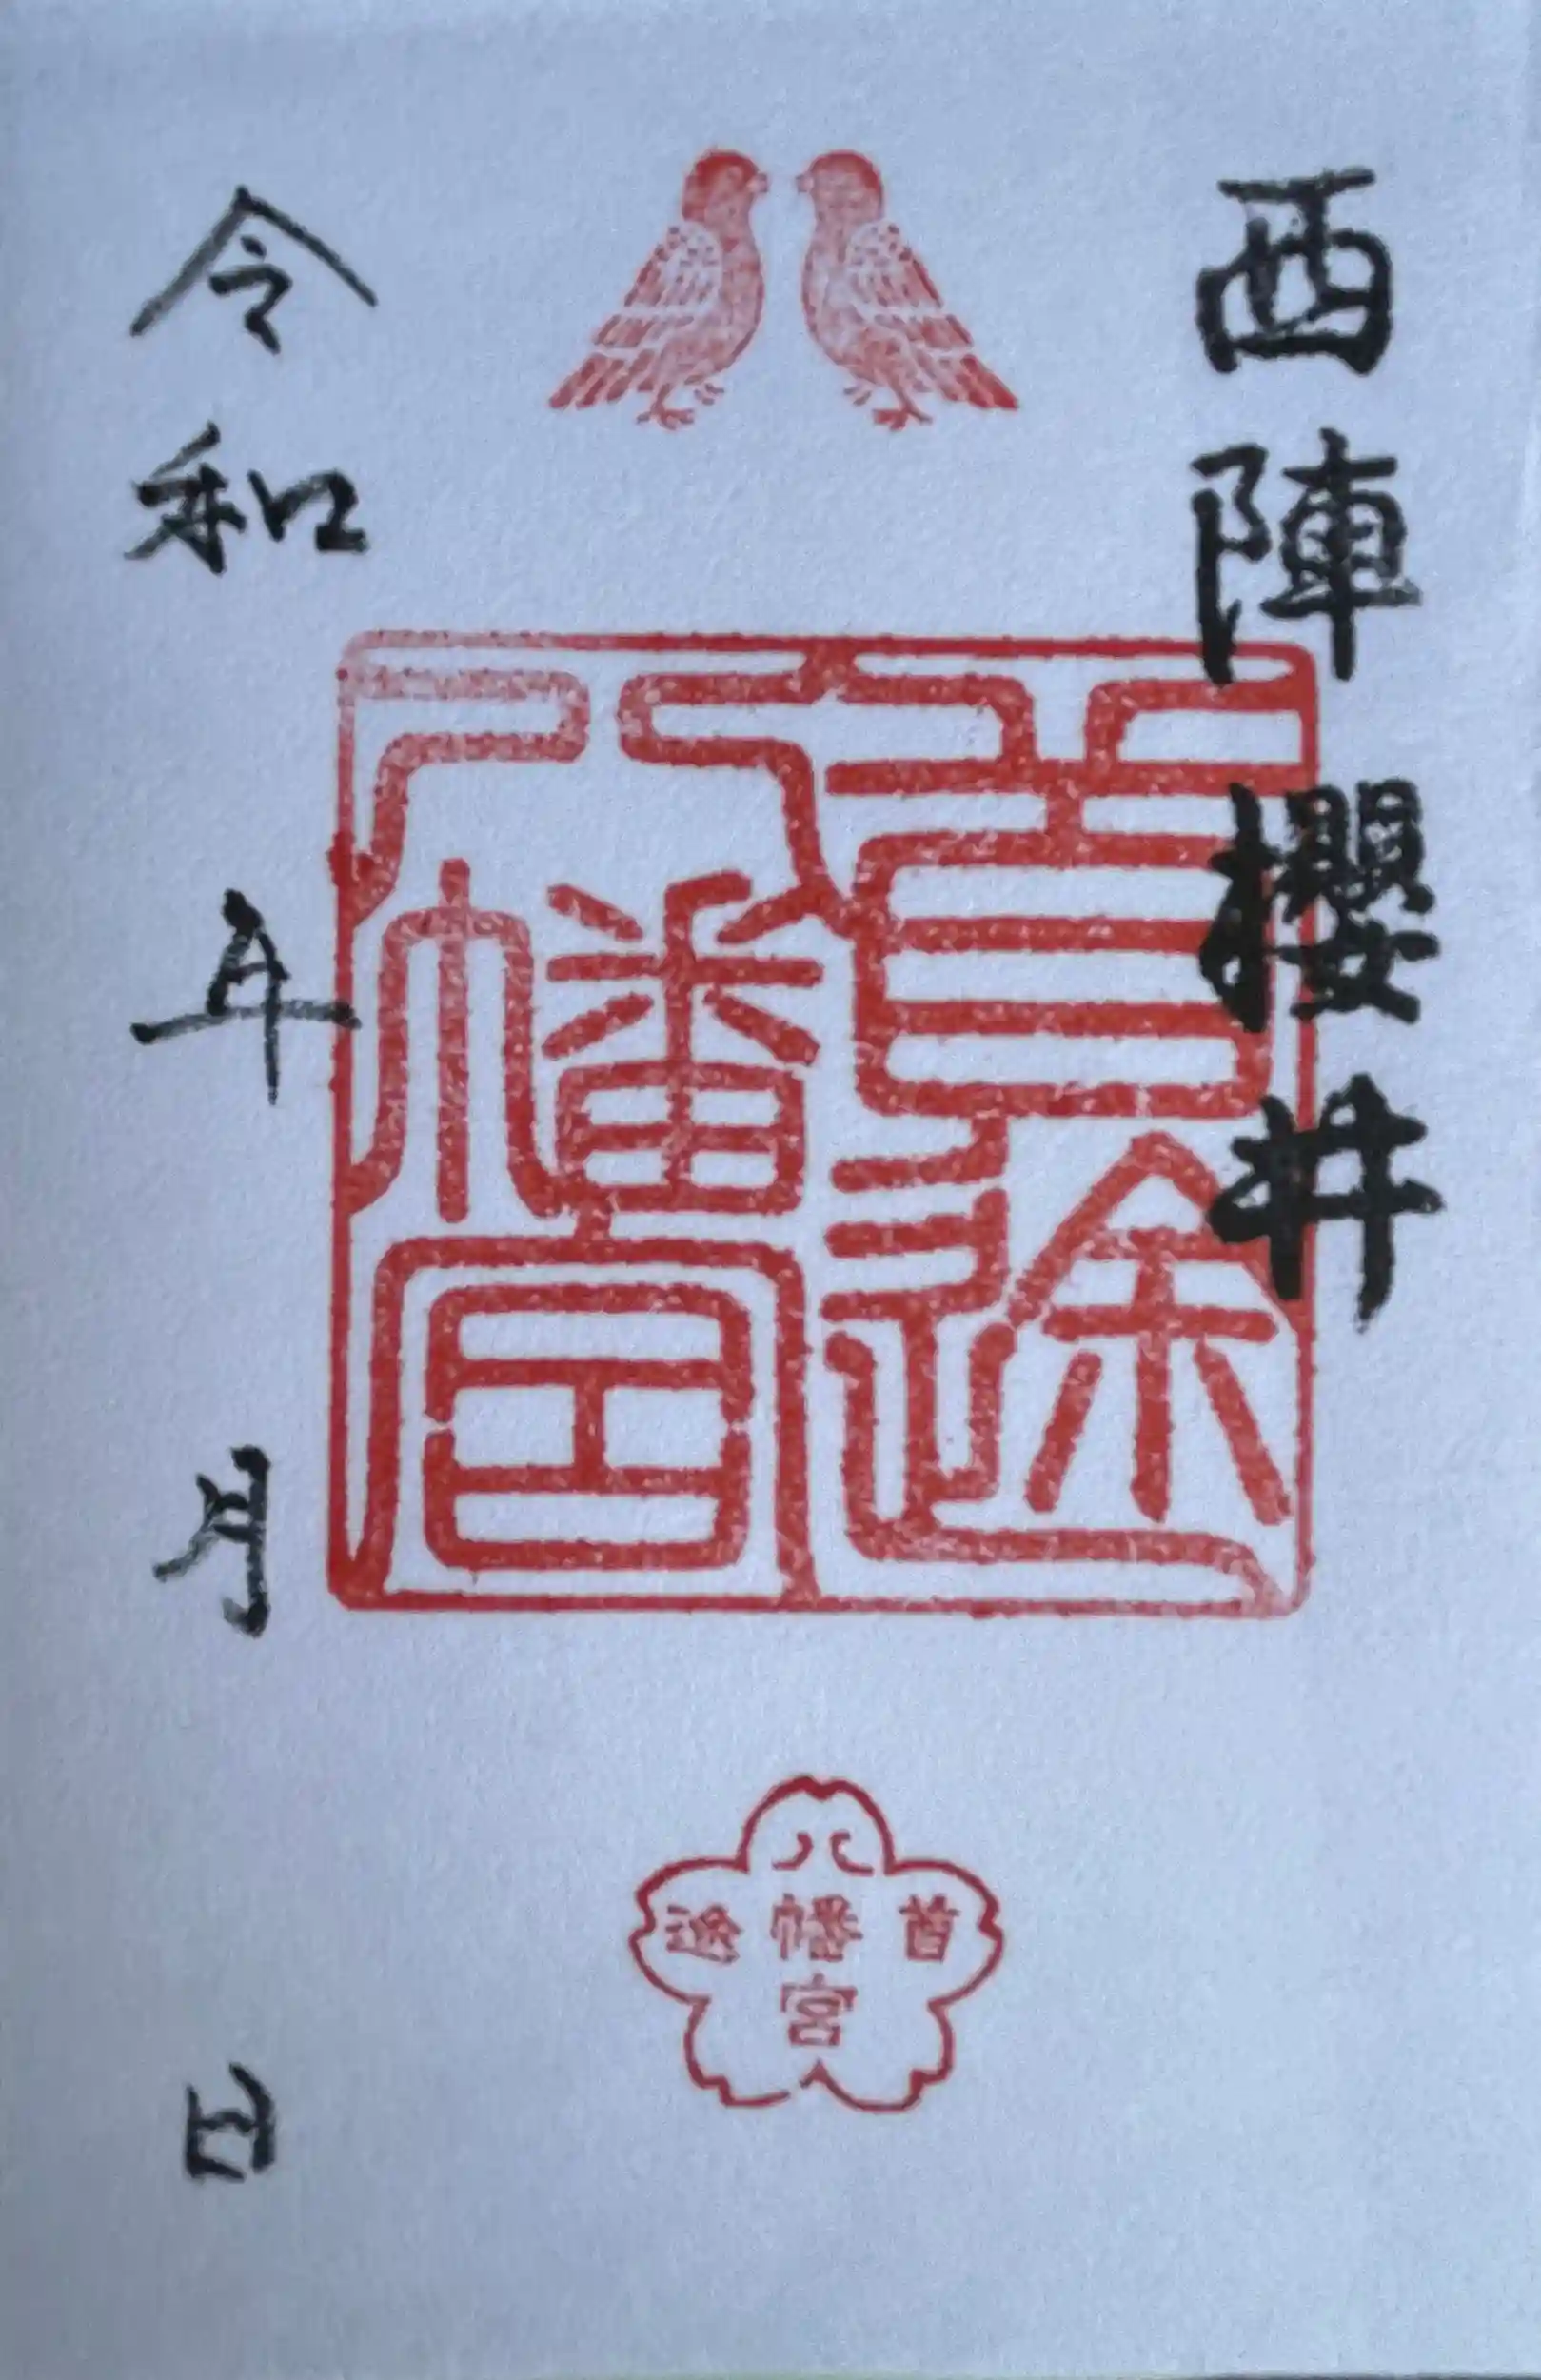 西陣櫻井
首途
八幡宮
首途
八幡宮
令和 年 月 日